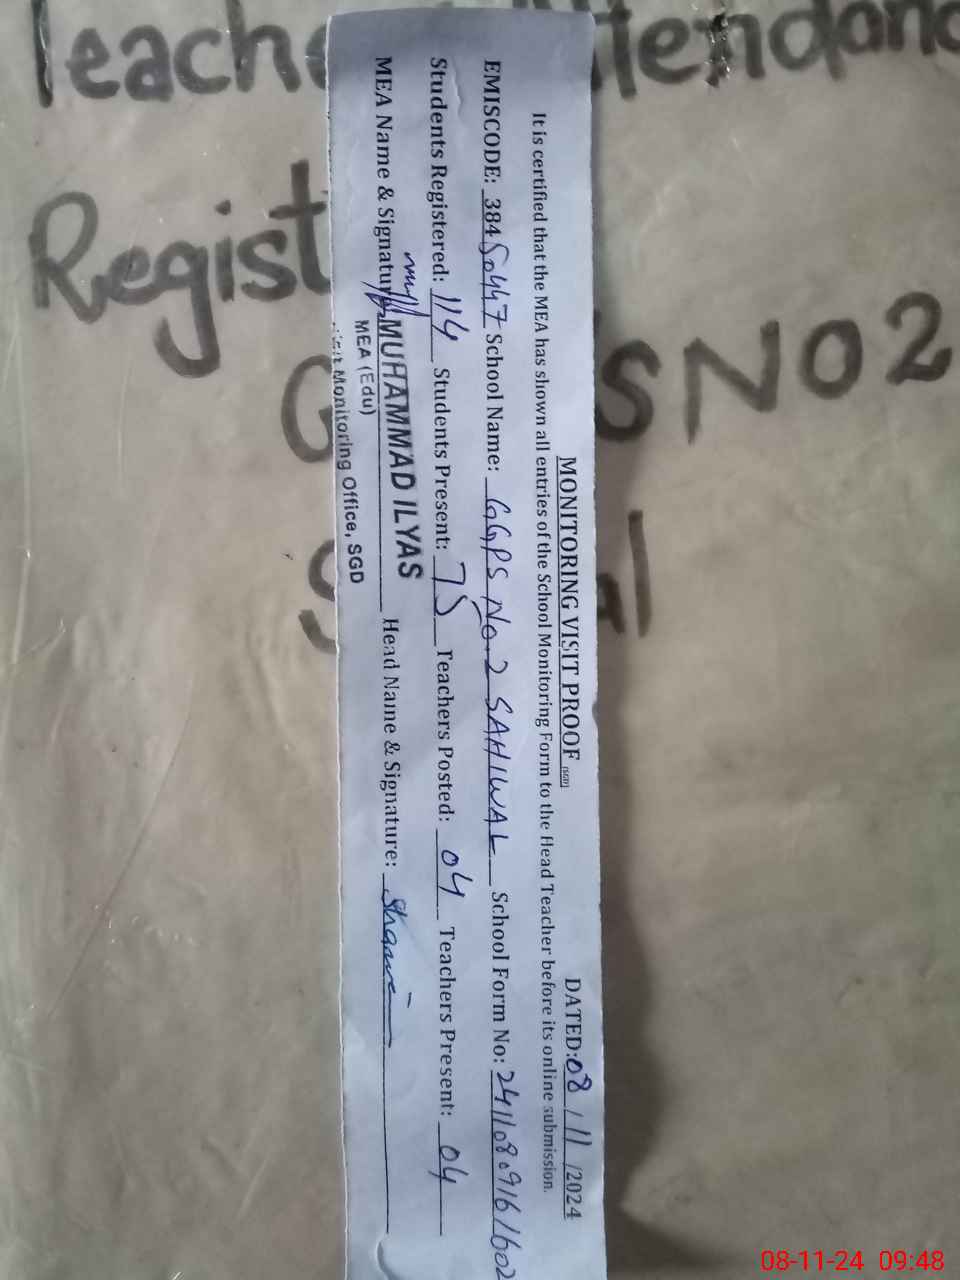 Teacher Attendanc
Regist
SNO2
MONITORING VISIT PROOF (SGD) DATED: 08 / 11 /2024
It is certified that the MEA has shown all entries of the School Monitoring Form to the Head Teacher before its online submission.
EMISCODE: 38450447 School Name: GGPS No.2 SAHIWAL School Form No: 24110809161602
Students Registered: 114 Students Present: 75 Teachers Posted: 04 Teachers Present: 04
MEA Name & Signature: MUHAMMAD ILYAS Head Name & Signature:
MEA (Edu)
Monitoring Office, SGD
08-11-24 09:48